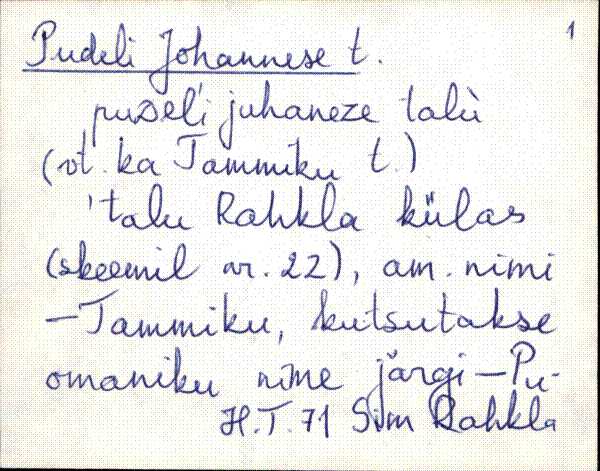 1
Pudeli Johannese t.
puᴅeĺi juhaneze talù
(vt. ka Tammiku t.)
'talu Rahkla külas
(skeemil nr. 22), am. nimi
-Tammiku, kutsutakse
omaniku nime järgi - Pu-
H.T. 71 Sim Rahkla